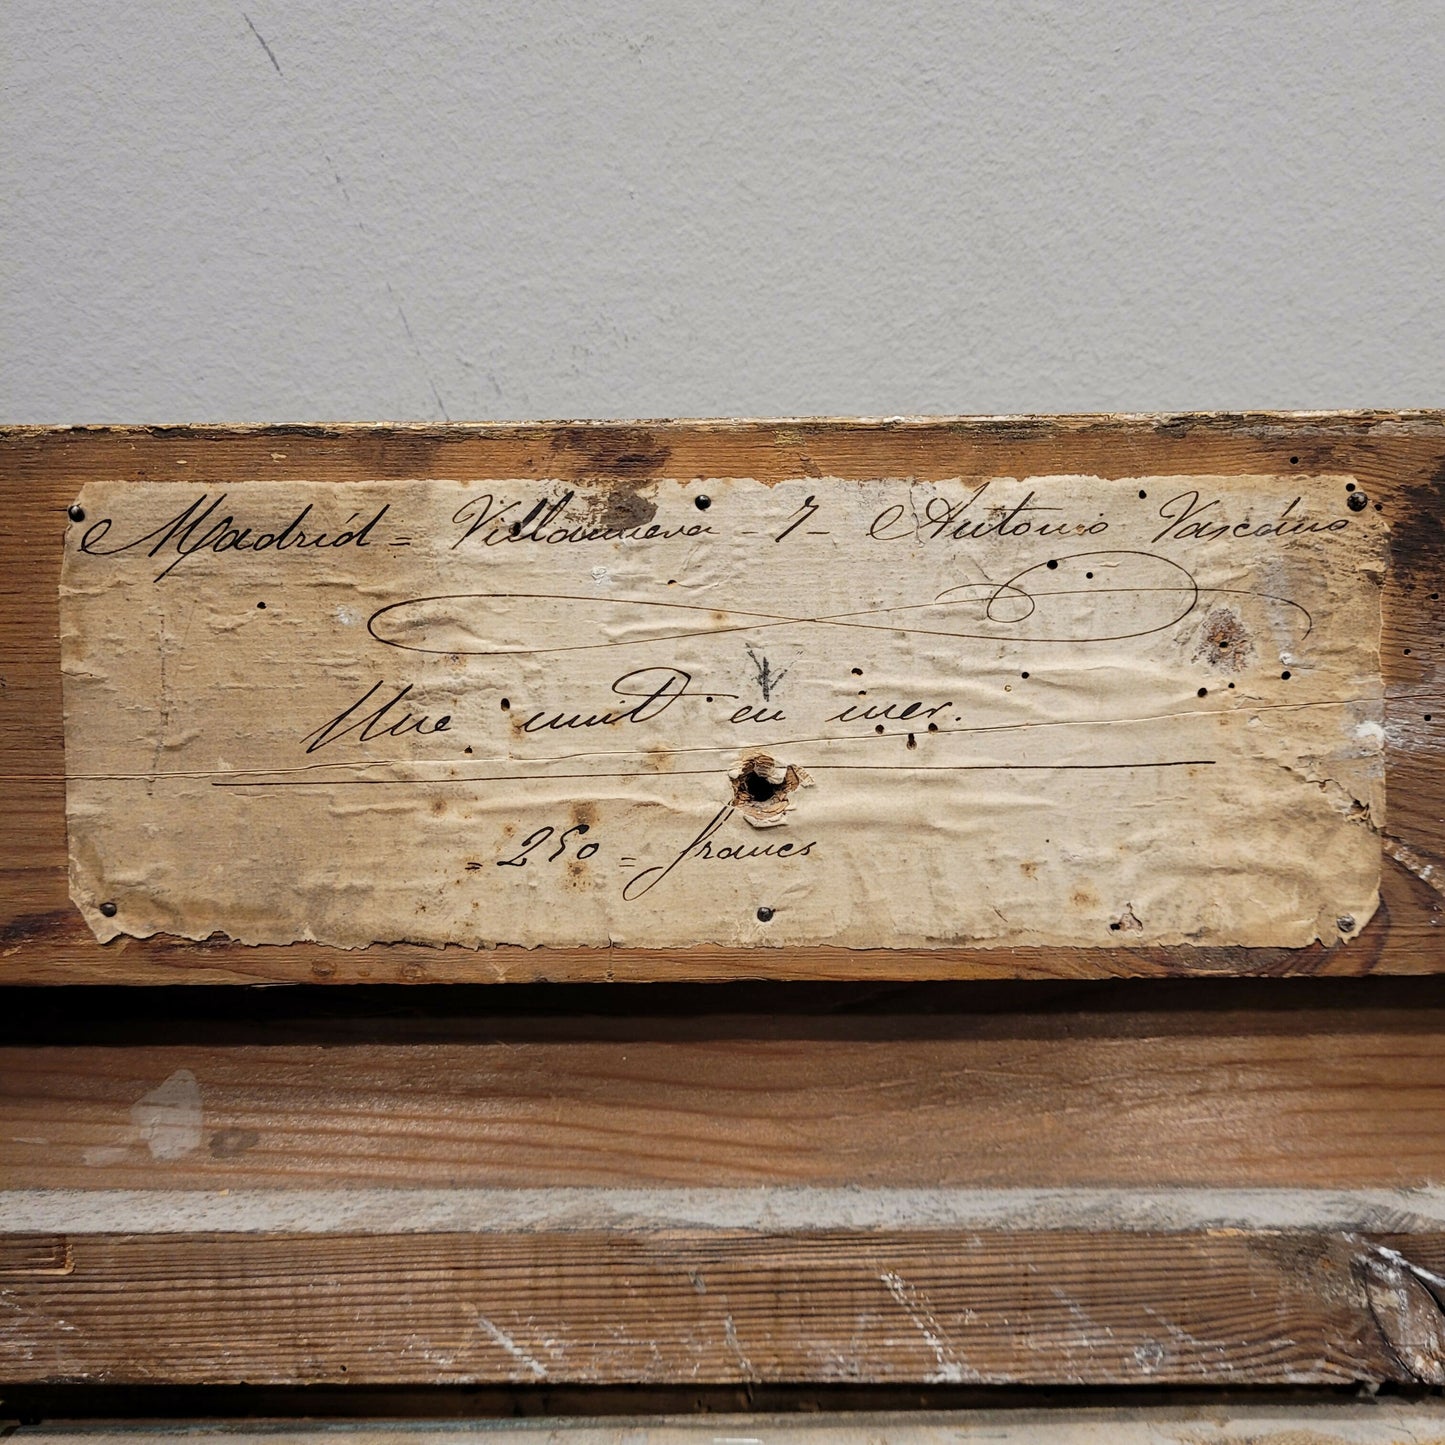 Madrid = Villanueva - 7 - Antonio Vascáno
Une nuit en mer.
= 250 = francs